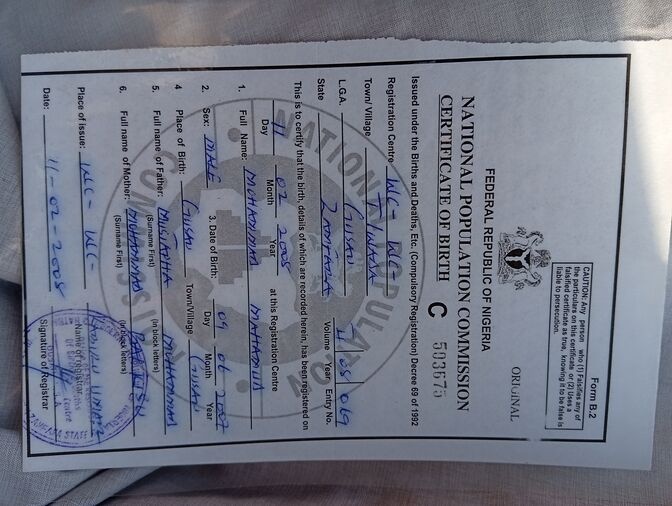 Form B.2
CAUTION: Any person who (1) Falsifies any of
the particulars on this certificate or (2) Uses a
falsified certificate as true, knowing it to be false is
liable to persecution.
ORIGINAL
FEDERAL REPUBLIC OF NIGERIA
NATIONAL POPULATION COMMISSION
CERTIFICATE OF BIRTH C 503675
Issued under the Births and Deaths, Etc. (Compulsory Registration) Decree 69 of 1992
Registration Centre WC- WC-
Town/Village T/WADA
L.G.A. GUSAU 11 08 069
State ZAMFARA Volume Year Entry No.
This is to certify that the birth, details of which are recorded herein, has been registered on
11 02 2008 at this Registration Centre
Day Month Year
1. Full Name: MUHAMMAD
2. Sex: MALE 3. Date of Birth: 09 06 2007
Day Month Year
4 Place of Birth: GUSAU Town/Village GUSAU
5. Full name of Father: MUSTAPHA MUHAMMAD
(Surname First) (In block letters)
6. Full name of Mother: MUHAMMAD
(Surname First) (In block letters)
Place of issue: WC- WC-
Name of registrar
Date: 11-02-2008 Signature of Registrar
NATIONAL POPULATION COMMISSION
ZAMFARA STATE